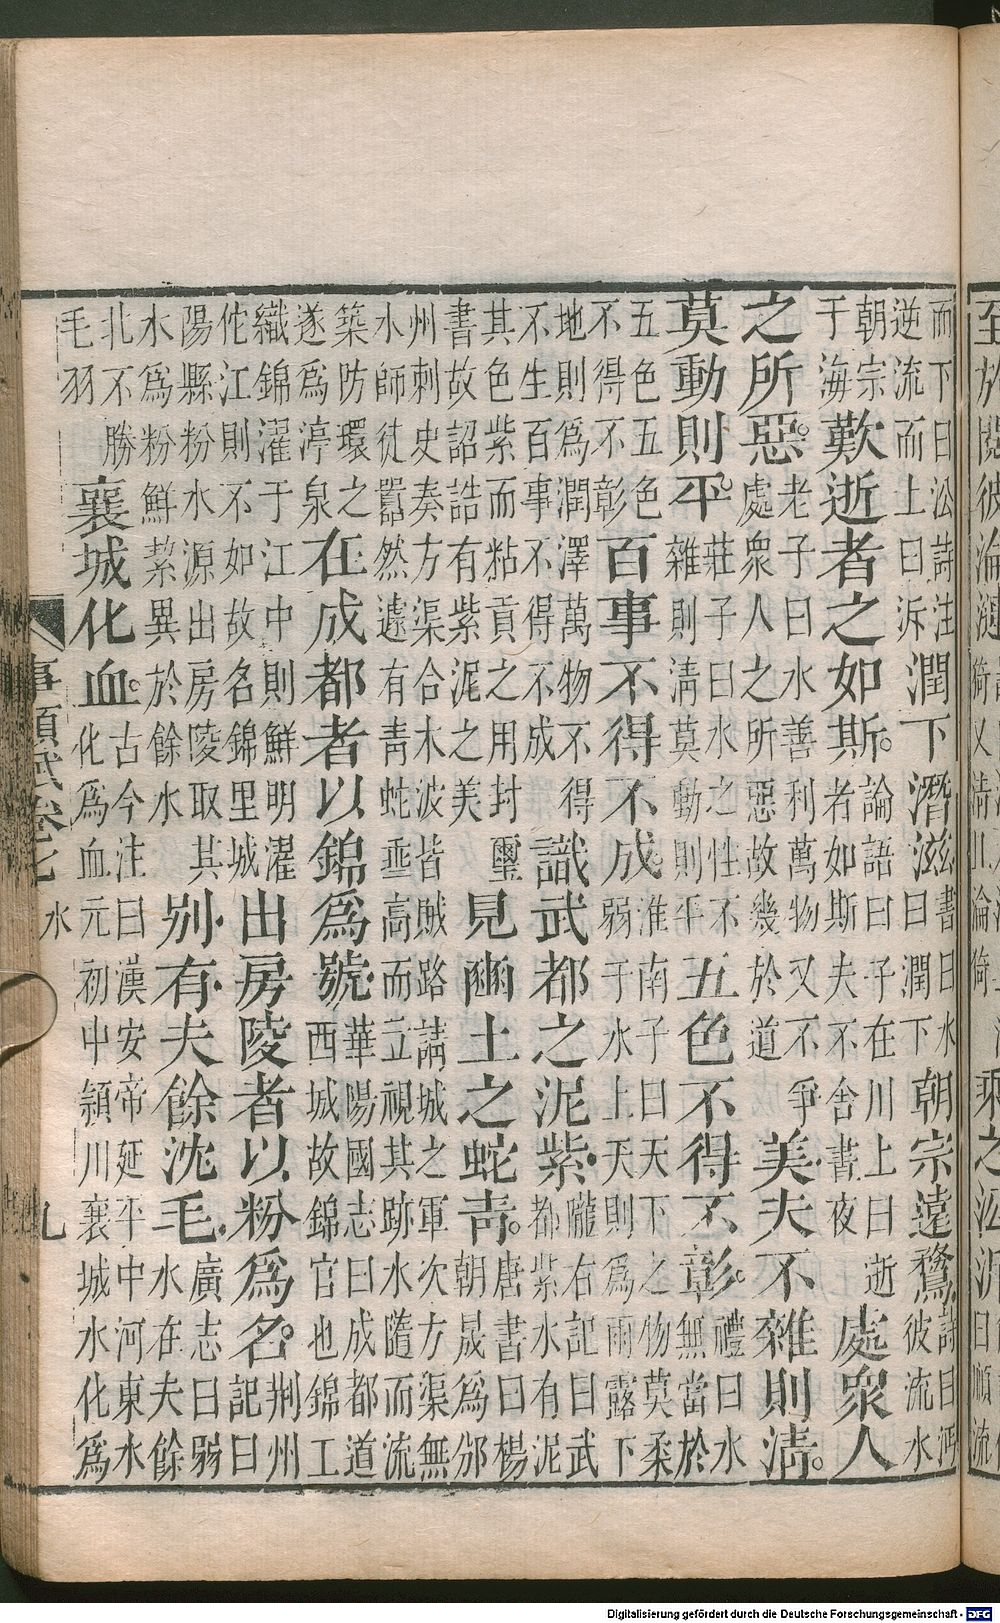 而下曰㳂詩注
逆流而上曰泝
潤下濳滋
書曰水
曰潤下
朝宗遠騖
詩曰沔
彼流水
朝宗
于海
歎逝者之如斯。
論語曰子在川上曰逝
者如斯夫不舍晝夜
處衆人
之所惡。
老子曰水善利萬物又不爭
處衆人之所惡故幾於道
美夫不雜則清。
莫動則平。
莊子曰水之性不
雜則清莫動則平
五色不得不彰。
禮曰水
無當於
五色五色
不得不彰
百事不得不成。
淮南子曰天下之物莫柔
弱于水上天則爲雨露下
地則爲潤澤萬物不得
不生百事不得不成
識武都之泥紫。
隴右記曰武
都紫水有泥
其色紫而粘貢之用封璽
書故詔誥有紫泥之美
見豳土之蛇青。
唐書曰楊
朝晟爲邠
州刺史奏方渠合木波皆賊路請城之軍次方渠無
水師徒囂然遽有青蛇乖高而立視其跡水隨而流
築防環之
遂爲渟泉
在成都者以錦爲號。
華陽國志曰成都道
西城故錦官也錦工
織錦濯于江中則鮮明濯
佗江則不如故名錦里城
出房陵者以粉爲名。
荆州
記曰
陽縣粉水源出房陵取其
水爲粉鮮絜異於餘水
別有夫餘沈毛。
廣志曰弱
水在夫餘
北不勝
毛羽
襄城化血。
古今注曰漢安帝延平中河東水
化爲血元初中頴川襄城水化爲
事類賦卷七 水 九
Digitalisierung gefördert durch die Deutsche Forschungsgemeinschaft - DFG